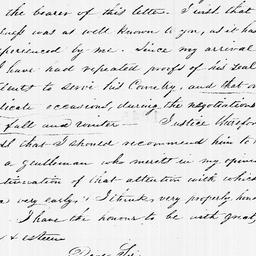 the bearer of this letter. I wish that
was as well known to you, as it has
experienced by me. Since my arrival
I have had repeated proofs of his zeal
to serve his Country, and that on
delicate occasions, during the negotiations
fall and winter. Justice therefore
that I should recommend him to
a gentleman who merits in my opinion
of that attention with which
very early, I think, very properly, hono
I have the honour to be with great
& esteem
Dear Sir